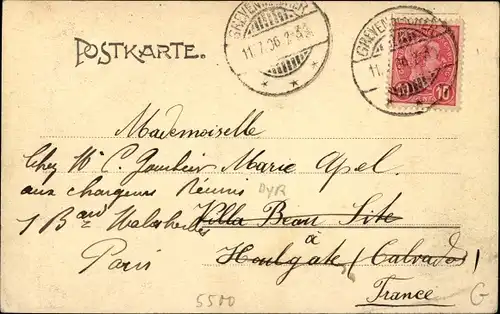 GREVENMACHER
11.7.06
POSTKARTE.
GREVENMACHER
11.
10
Mademoiselle
Chez Mr C. Gombeir Marie Apel.
aux chargeurs Réunis
1 Bard Malesherbes Villa Beau Site
à
Paris Houlgate (Calvados)
France
DYR
5500
G